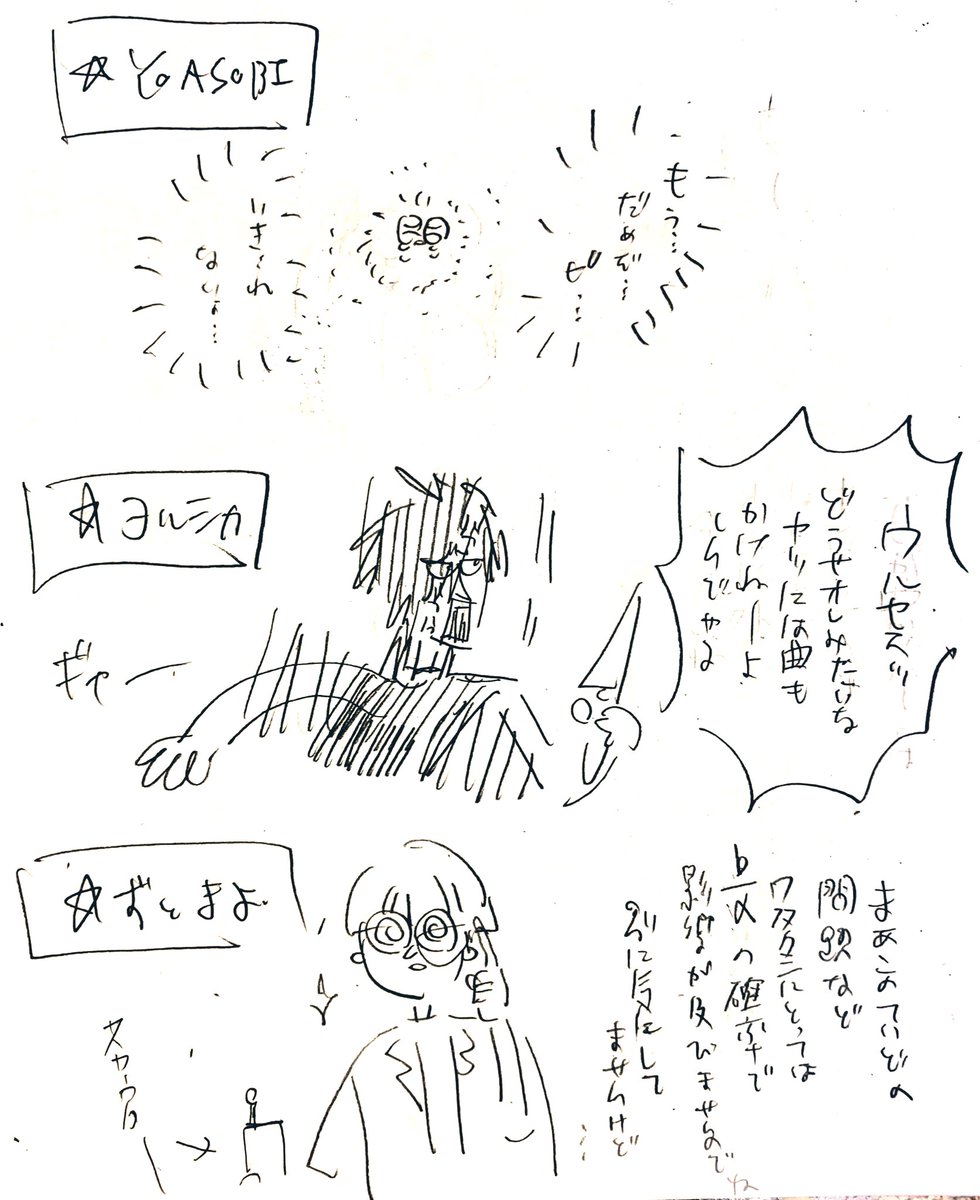 ☆YOASOBI
もう…
だめだぞ…
ぜ…
いきれ
ないよ…
☆ヨルシカ
ウルセエッ
どうせオレみたいな
ヤツには曲も
かけねーよ
しんでやる
ギャー
☆ずとまよ
まあこのていどの
問題など
ワタクシにとっては
b/aの確率で
影響が及びませんのでね
別に気にして
ませんけど
…